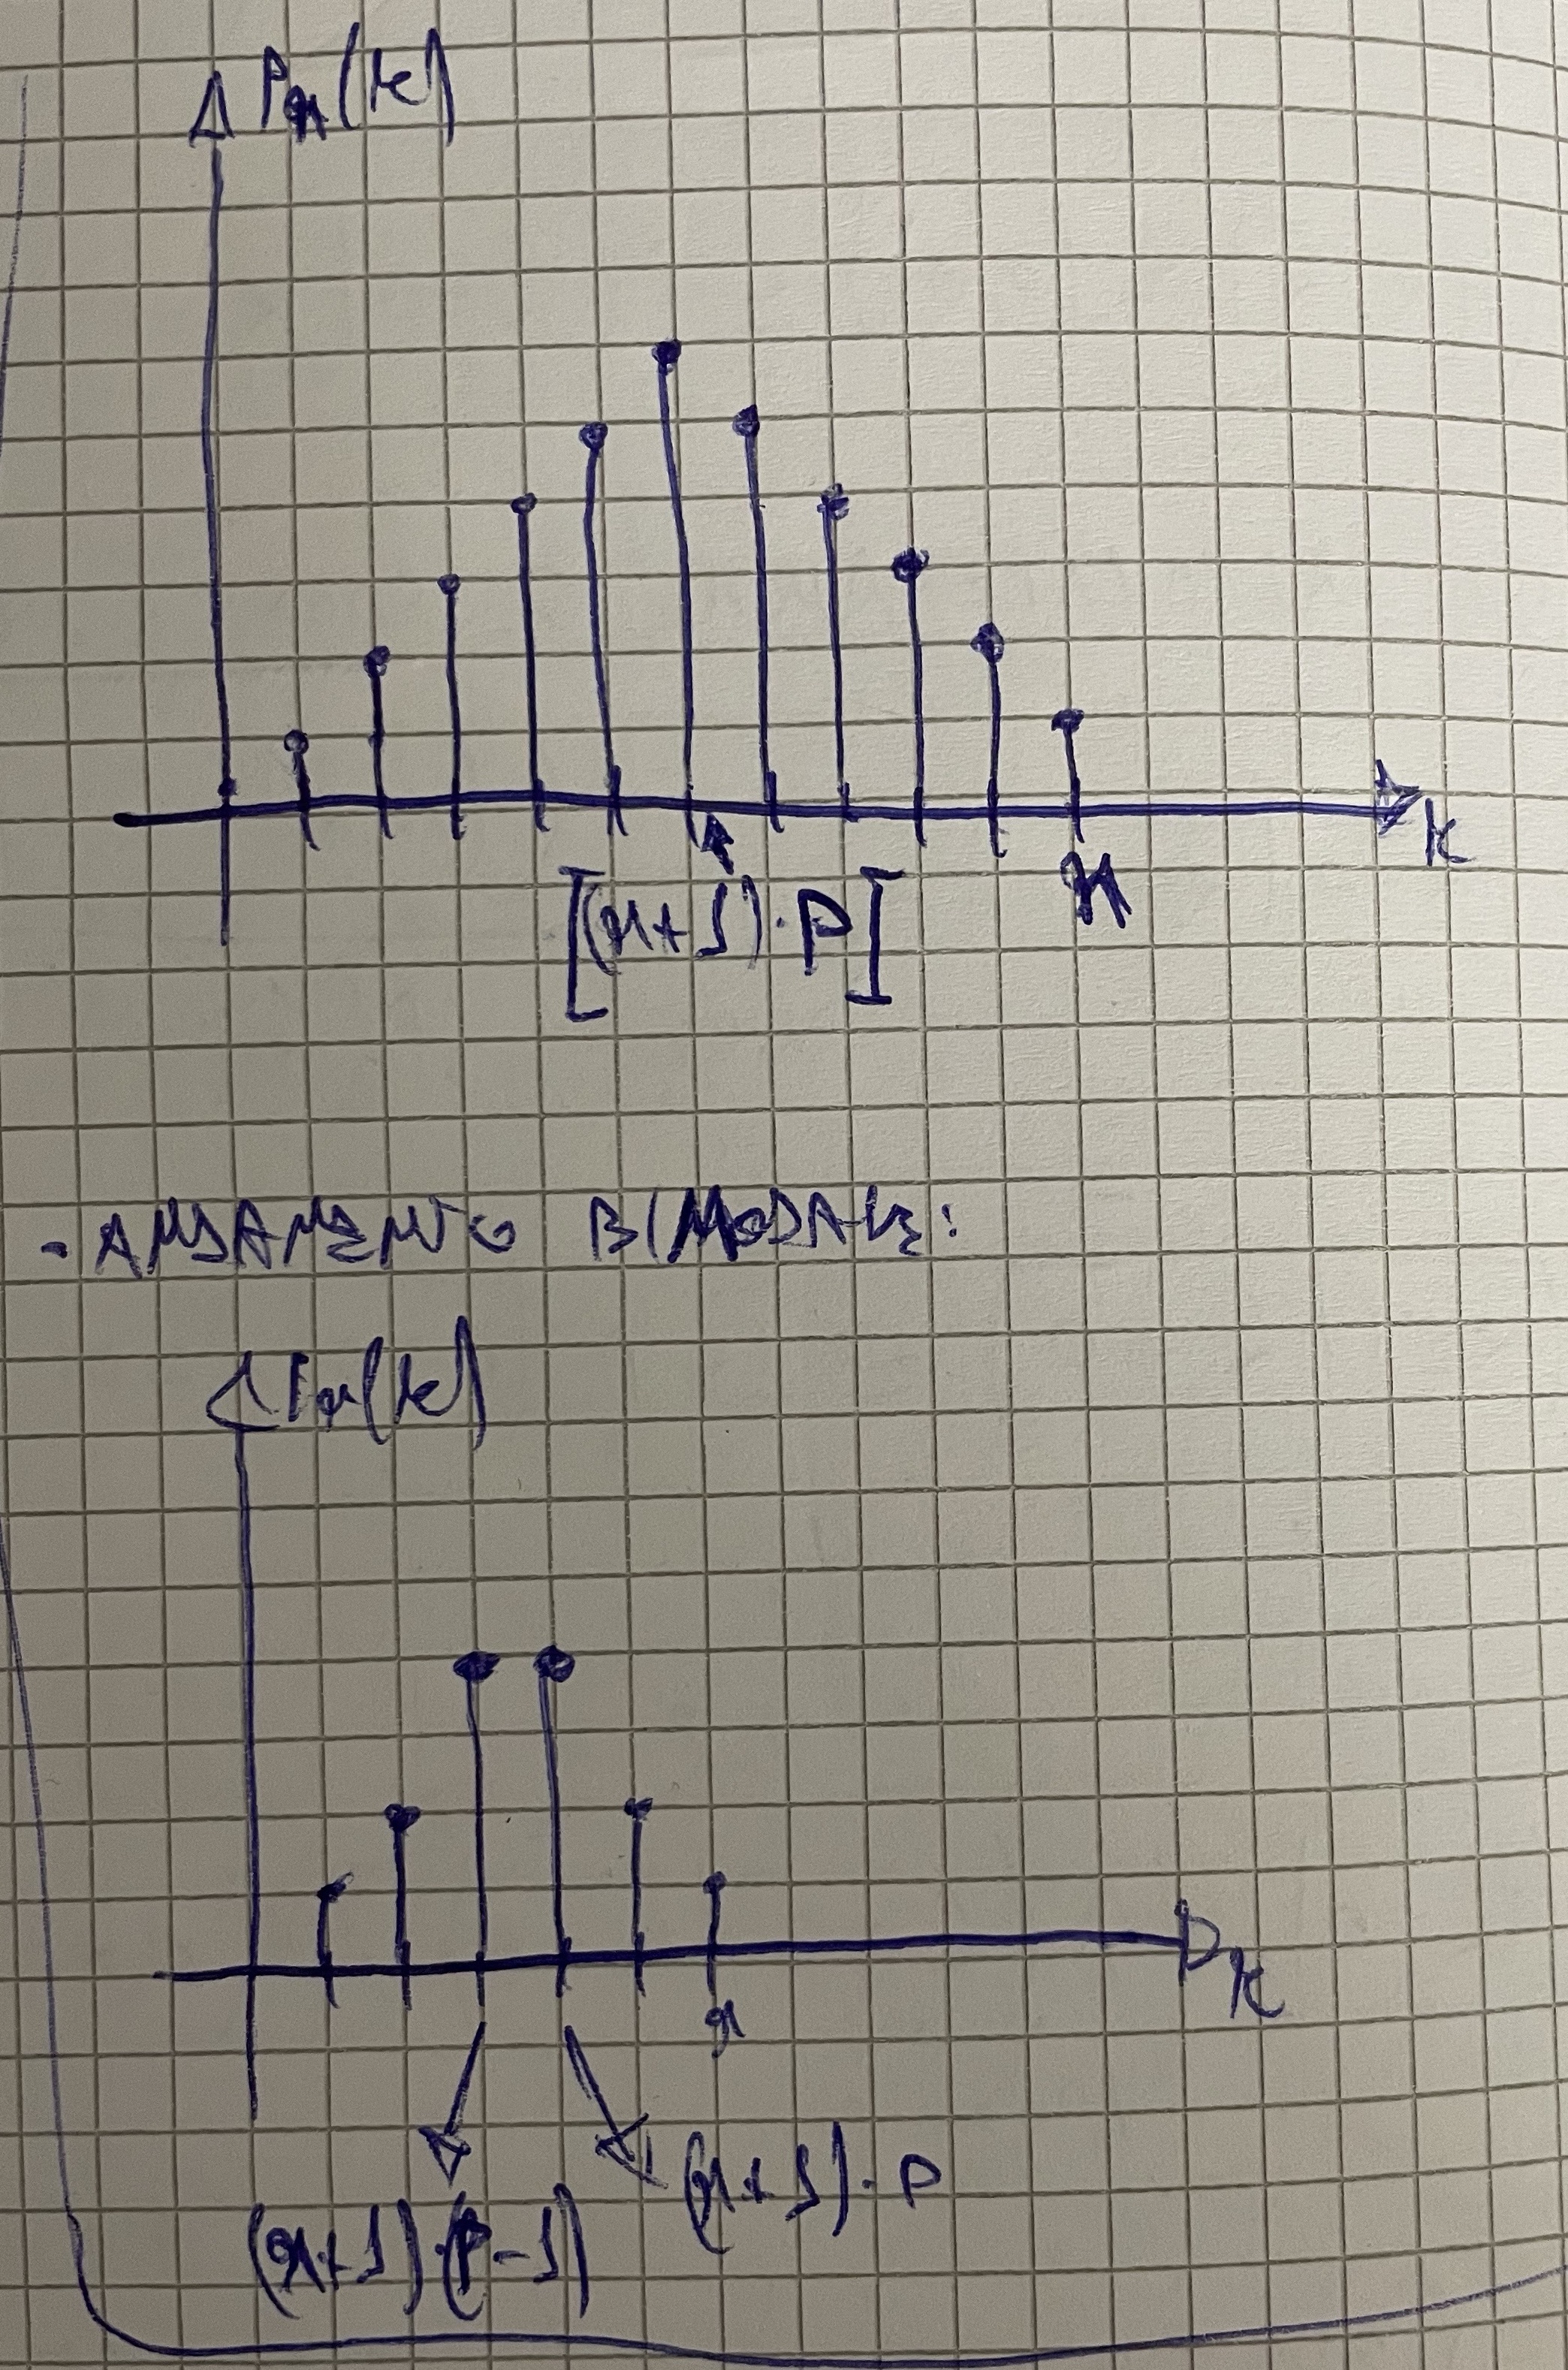 Pn(k)
k
[(n+1)·P]
n
- ANDAMENTO BIMODALE:
Pn(k)
k
n
(n+1)·P
(n+1)·(P-1)